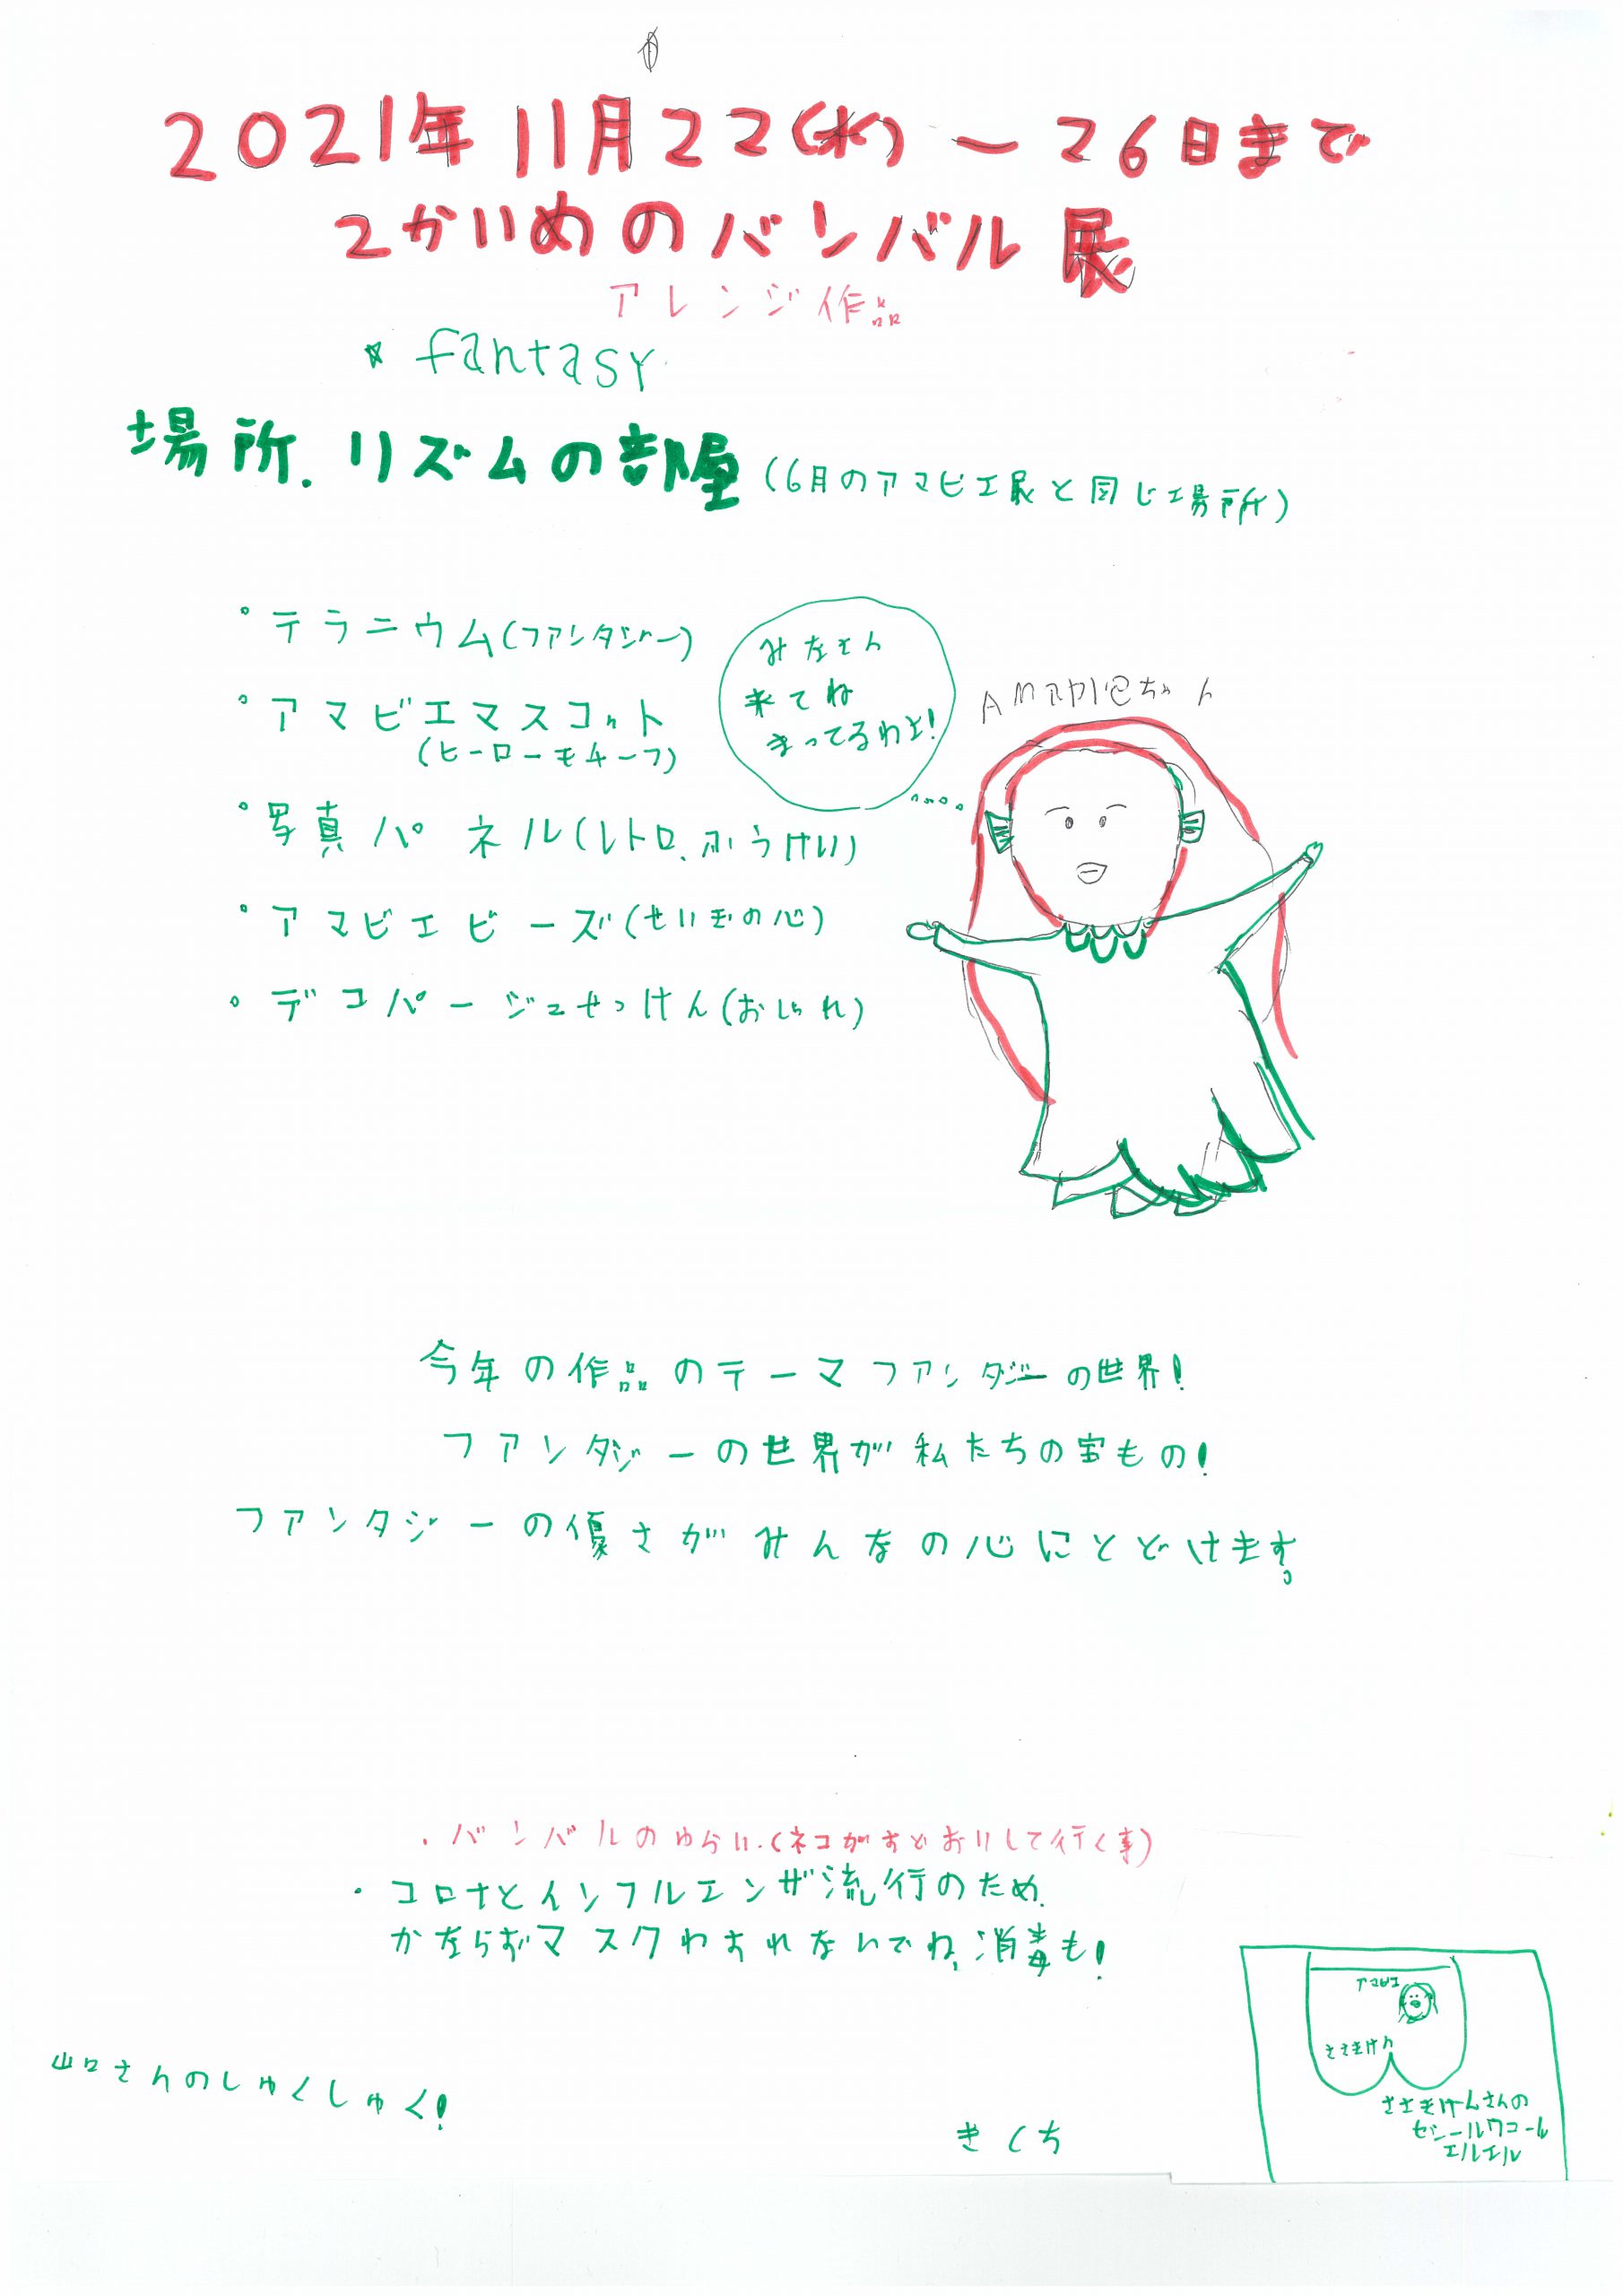 2021年11月22(水)ー26日まで
2かいめのバンバル展
アレンジ作品
fantasy
場所.リズムの部屋(6月のアマビエ展と同じ場所)
・テラニウム(ファンタジー)
・アマビエマスコット
(ヒーローモチーフ)
・写真パネル(レトロ、ふうけい)
・アマビエビーズ(せいぎの心)
・デコパージュせっけん(おしゃれ)
みなさん
来てね
まってるわよ!
ちゃん
今年の作品のテーマファンタジーの世界!
ファンタジーの世界が私たちの宝もの!
ファンタジーの優さがみんなの心にとどけます。
・バンバルのゆらい.(ネコがすどおりして行く事)
・コロナとインフルエンザ流行のため
かならずマスクわすれないでね、消毒も!
山口さんのしゅくしゅく!
きくち
アマビエ
ささきけん
ささきけんさんの
エルエル